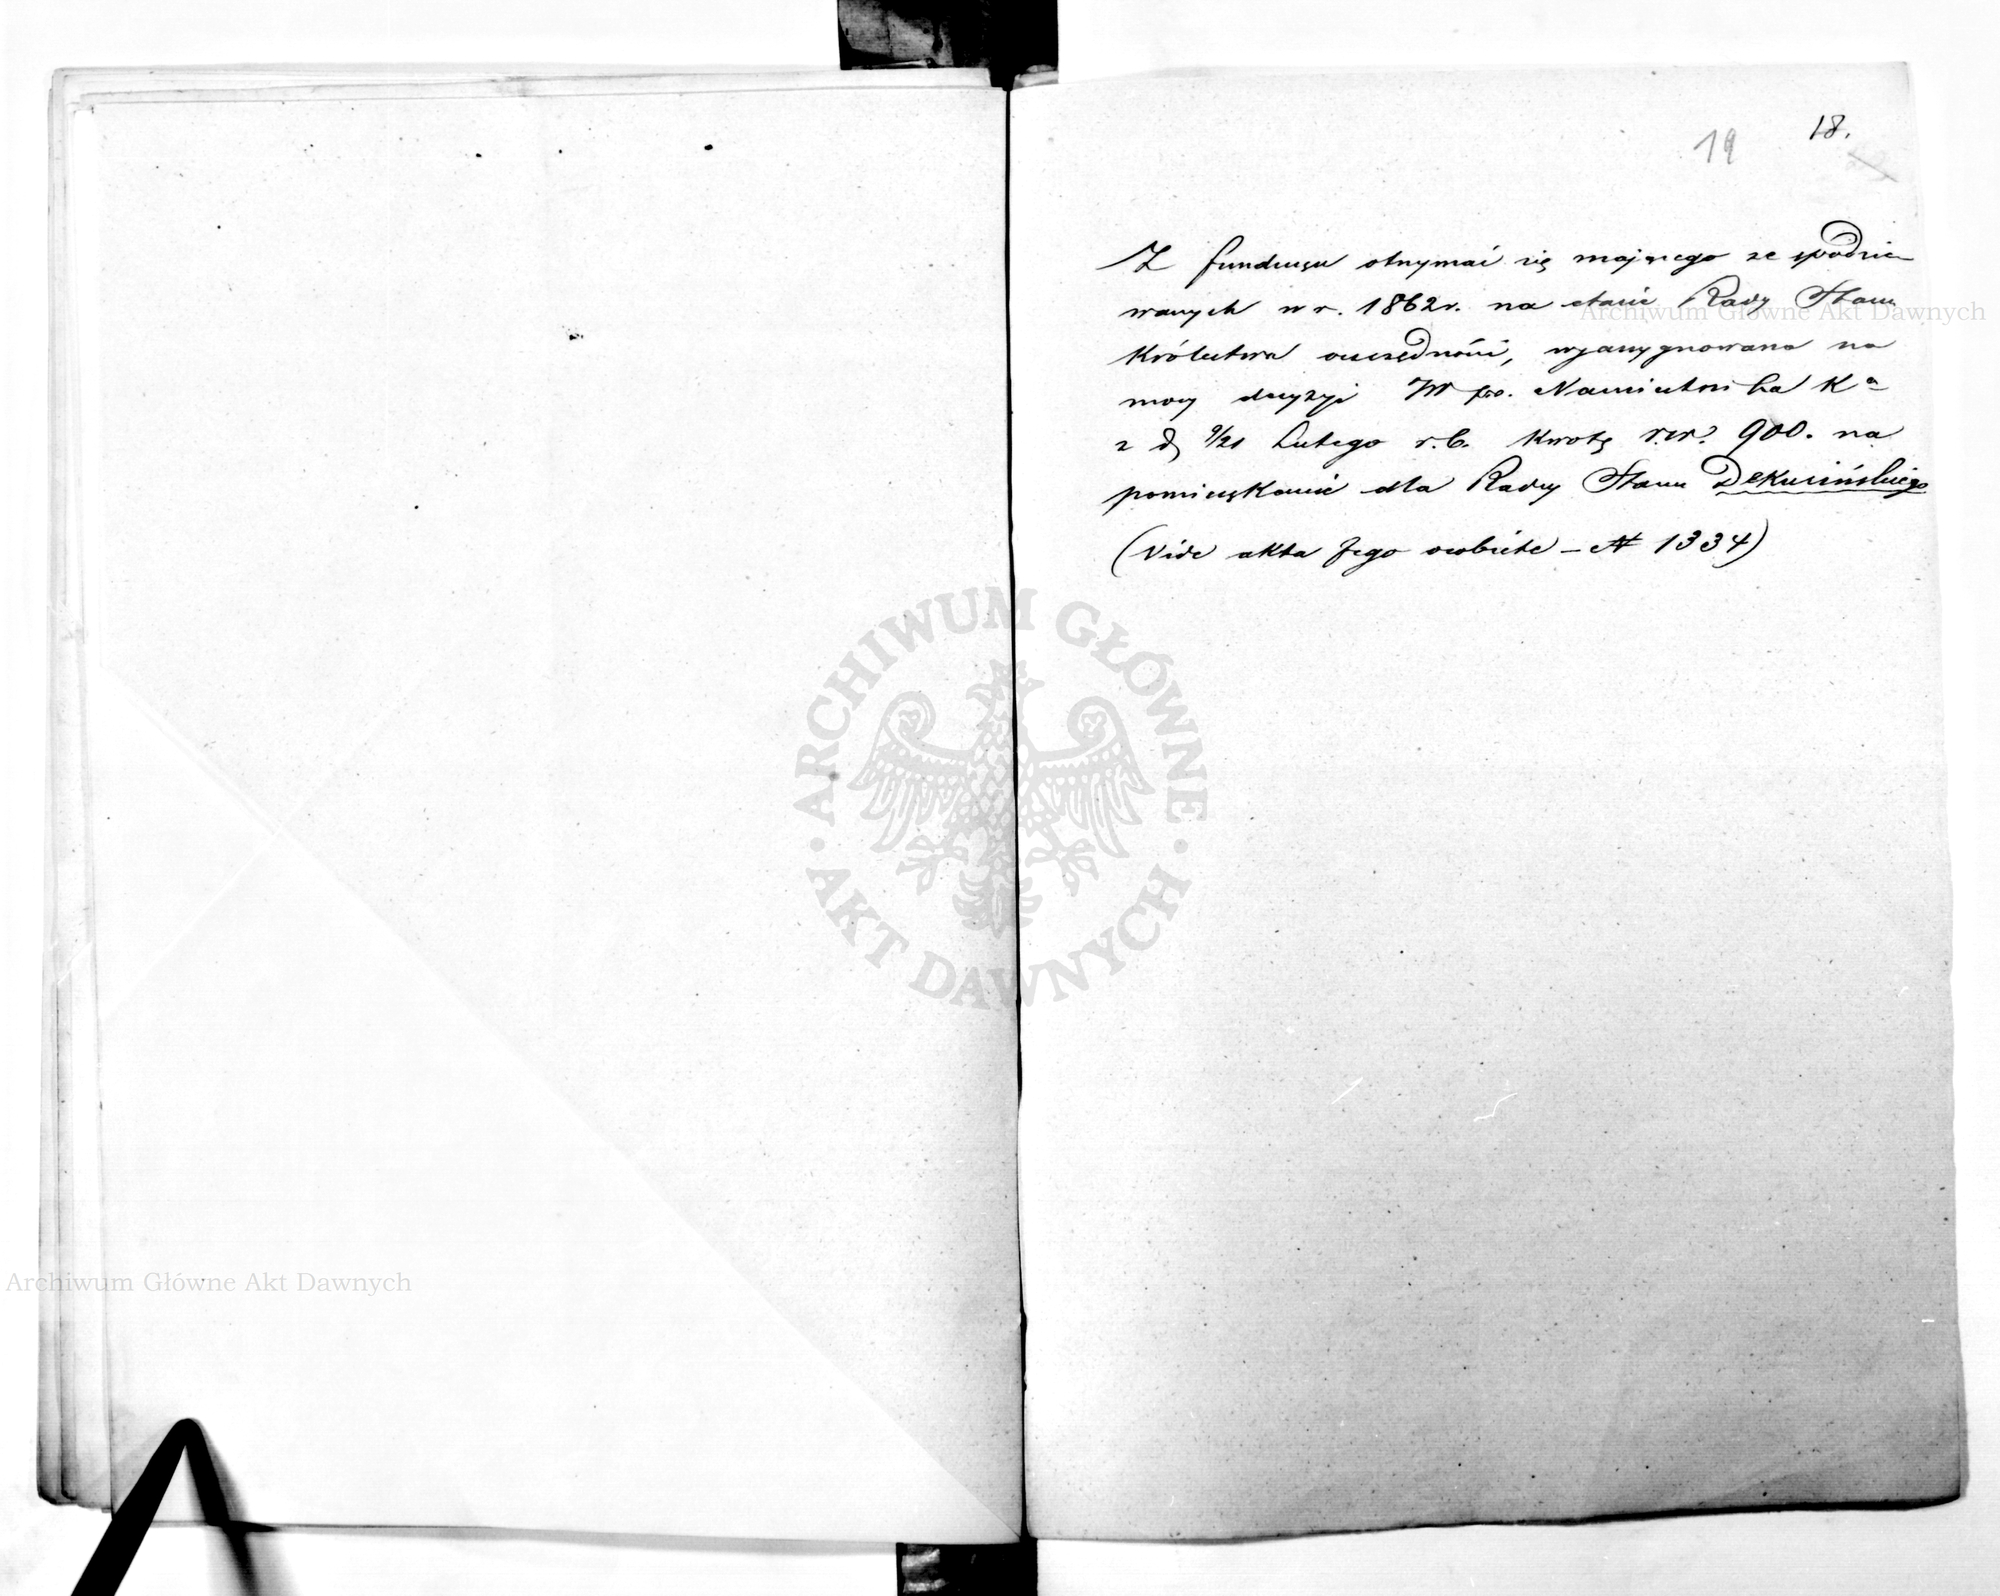 19 18.
Z funduszu otrzymać się mającego ze spodzie-
wanych w r. 1862r. na etacie Rady Stanu
Królestwa oszczędności, wyasygnowana na
mocy decyzyi JW po. Namiestnika K⁰
z d. 9/21 Lutego r.b. kwotę rsr. 900. na
pomieszkanie dla Radcy Stanu Dekucińskiego
(Vide akta Jego osobiste – N 1334)
Archiwum Główne Akt Dawnych
ARCHIWUM GŁÓWNE
· AKT DAWNYCH ·
Archiwum Główne Akt Dawnych